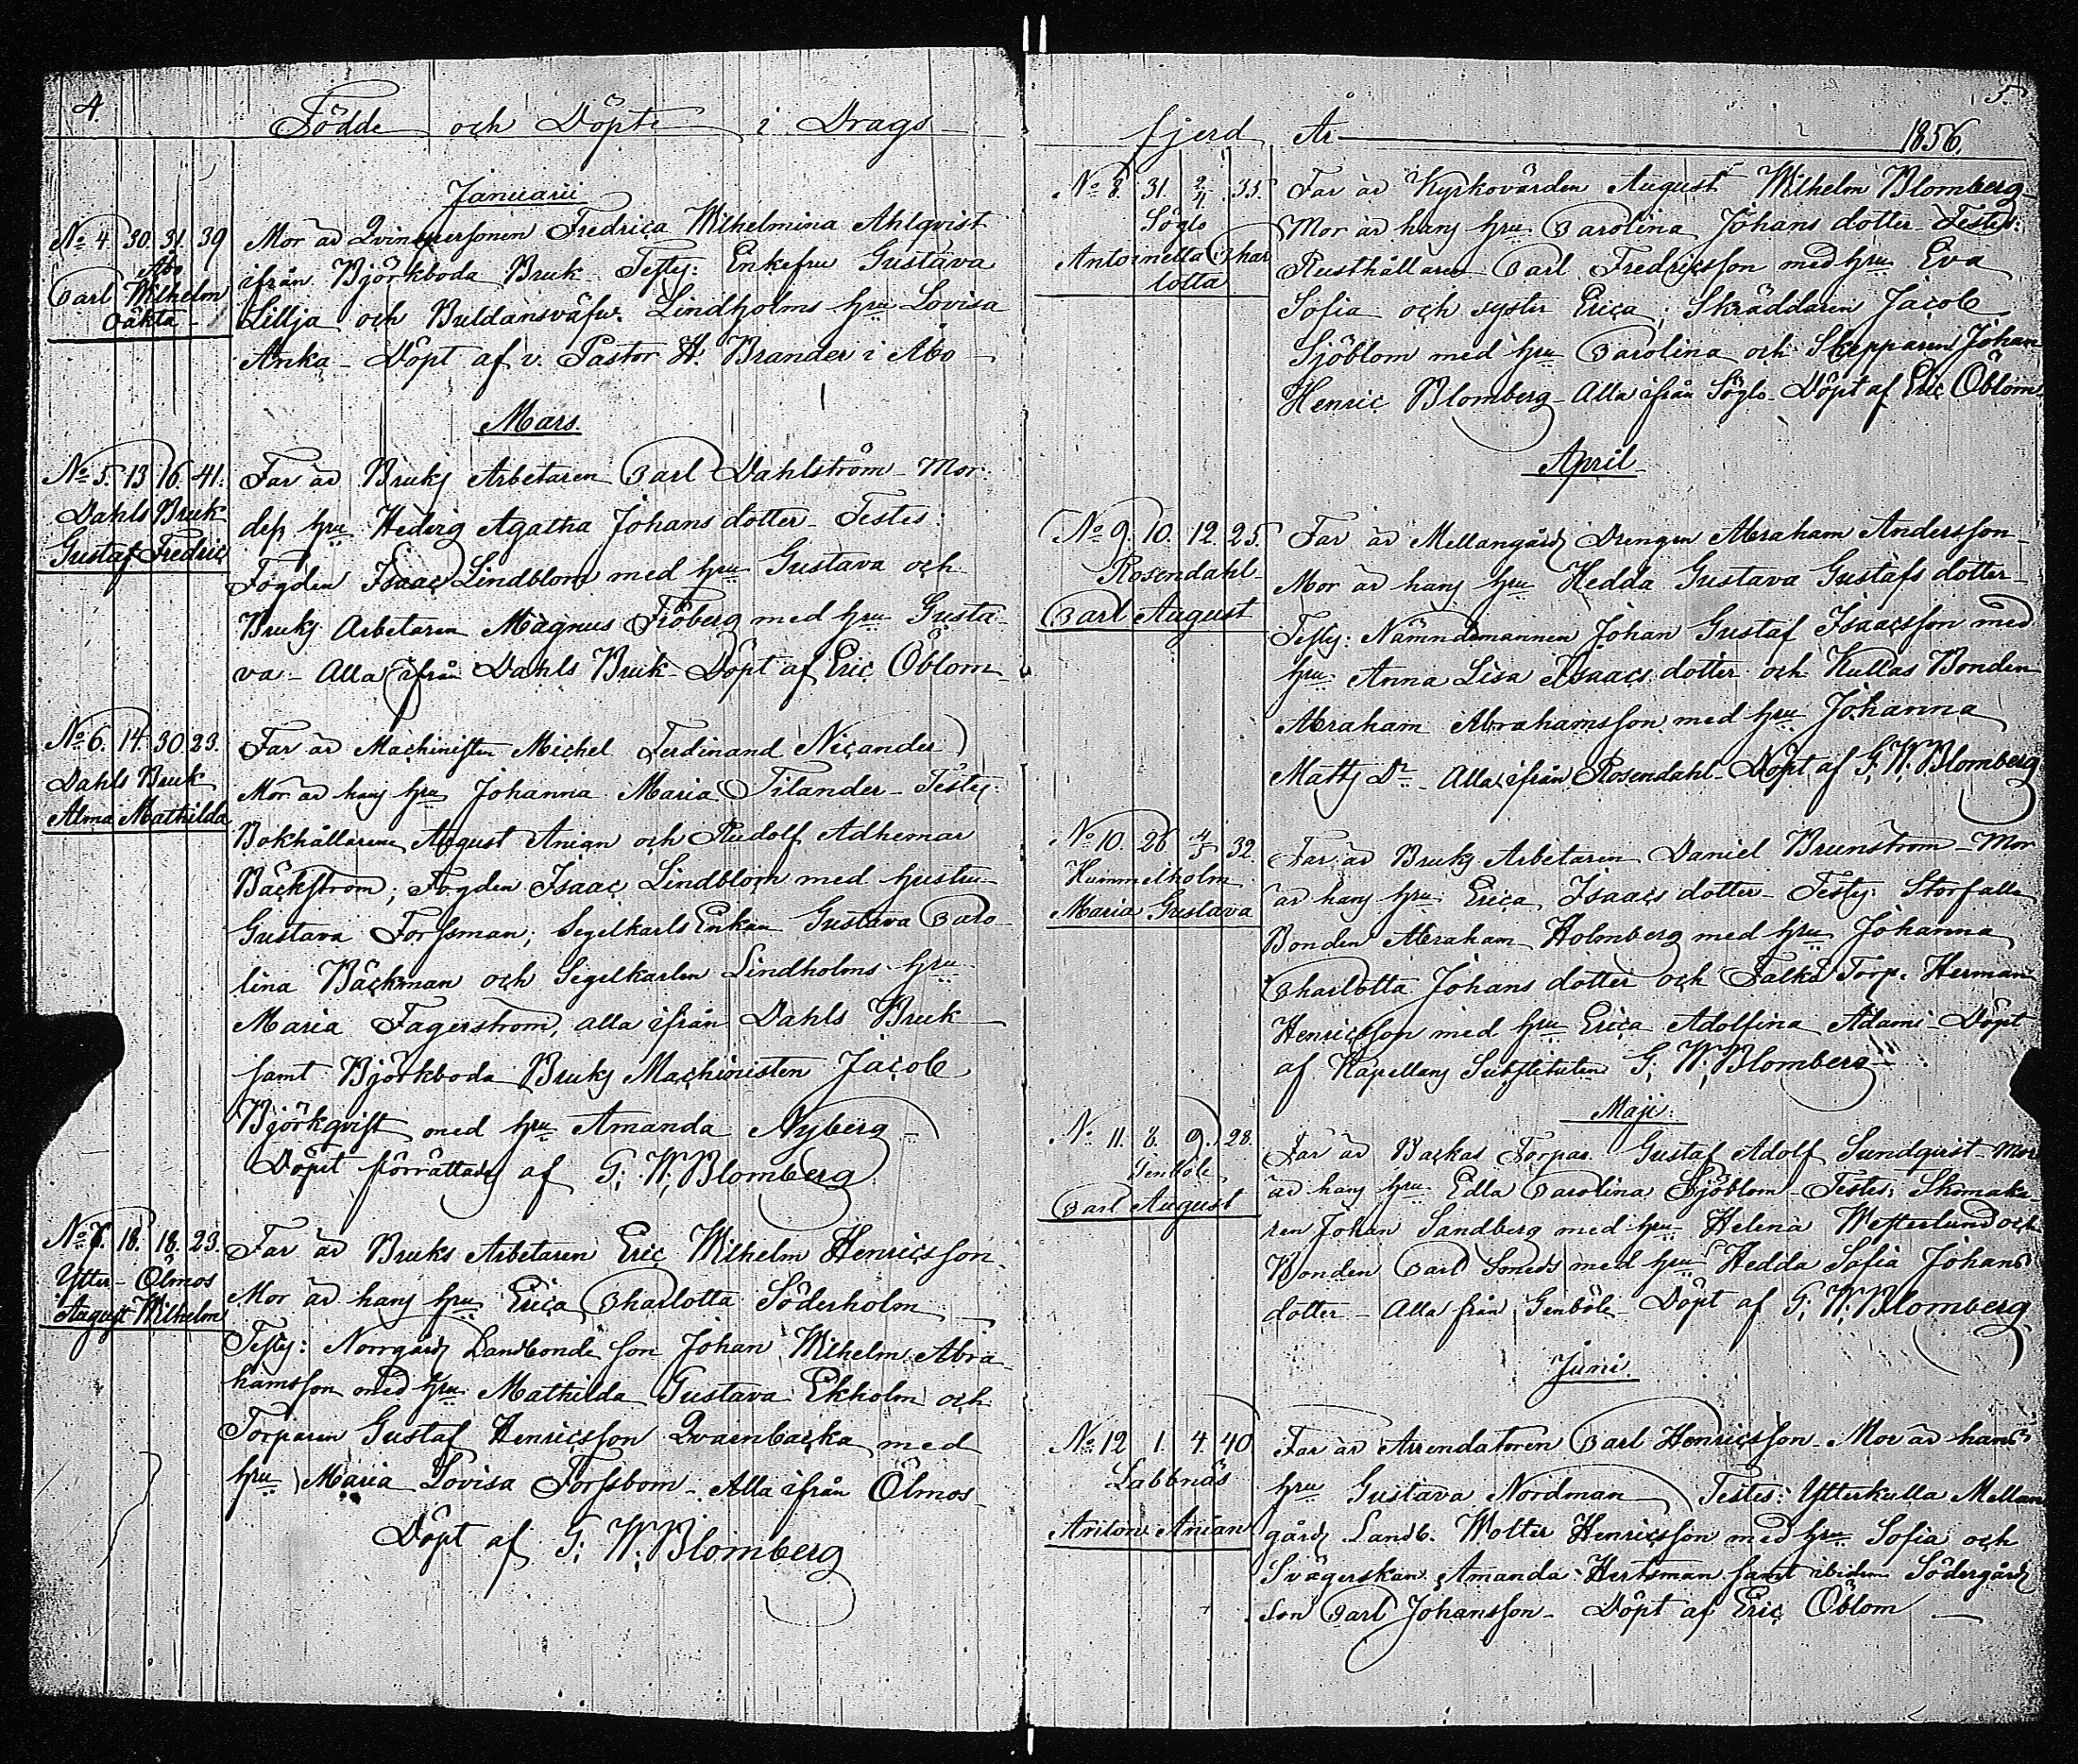 4.
Födde och Döpte i Drags-
Januarii
No 4. 30. 31. 39
Åbo
Carl Wilhelm
oäkta
Mor är Qvinspersonen Fredrica Wilhelmina Ahlqvist
ifrån Björkboda Bruk Testes: Enkefru Gustava
Lillja och Buldansväfv. Lindholms hru Lovisa
Anka - Döpt af v. Pastor H. Brander i Åbo -
Mars.
No 5. 13 16. 41.
Dahls Bruk
Gustaf Fredric
Far är Bruks Arbetaren Carl Dahlström - Mor:
dess hru Hedvig Agatha Johans dotter - Testes:
Fogden Isaac Lindblom med hru Gustava och
Bruks Arbetaren Magnus Fröberg med hru Gusta-
va - Alla ifrån Dahls Bruk - Döpt af Eric Öblom
No 6. 14. 30. 23.
Dahls Bruk
Alma Mathilda
Far är Machinisten Michel Ferdinand Nicander
Mor är hans hru Johanna Maria Tilander - Testes:
Bokhållarene August Anian och Rudolf Adhemar
Bäckström; Fogden Isaac Lindblom med hustru
Gustava Forssman; Segelkarls Enkan Gustava Caro-
lina Bäckman och Segelkarlen Lindholms hru
Maria Fagerström, alla ifrån Dahls Bruk
samt Björkboda Bruks Machinisten Jacob
Björkqvist med hru Amanda Nyberg -
Döpt förrättades af G. W. Blomberg
No 7. 18. 18. 23.
Ytter-Ölmos
August Wilhelm
Far är Bruks Arbetaren Eric Wilhelm Henricsson
Mor är hans hru Erica Charlotta Söderholm
Testes: Norrgårds Landbonde son Johan Wilhelm Abra-
hamsson med hru Mathilda Gustava Ekholm och
Torparen Gustaf Henricsson Qvarnbacka med
hru Maria Lovisa Forssbom - Alla ifrån Ölmos -
Döpt af G. W. Blomberg
5.
fjerd År 1856.
No 8. 31 2/4 33.
Söglo
Antoinetta Char
lotta
Far är Kyrkovärden August Wilhelm Blomberg
Mor är hans hru Carolina Johans dotter - Testes:
Rusthållaren Carl Fredricsson med hru Eva
Sofia och syster Erica; Skräddaren Jacob
Sjöblom med hru Carolina och Skepparen Johan
Henric Blomberg - Alla ifrån Söglo - Döpt af Eric Öblom
April
No 9. 10. 12. 25.
Rosendahl
Carl August
Far är Mellangårds Drengen Abraham Andersson -
Mor är hans hru Hedda Gustava Gustafs dotter -
Testes: Nämndemannen Johan Gustaf Isaacsson med
hru Anna Lisa Isaacs dotter och Kullas Bonden
Abraham Abrahamsson med hru Johanna
Matts Dr - Alla ifrån Rosendahl - Döpt af G. W. Blomberg
No 10. 26 4/5 32.
Hummelholm
Maria Gustava
Far är Bruks Arbetaren Daniel Brunström - Mor
är hans hru Erica Isaacs dotter - Testes: Storfalla
Bonden Abraham Holmberg med hru Johanna
Charlotta Johans dotter och Falkä Torp. Herman
Henricsson med hru Erica Adolfina Adami - Döpt
af Kapellans Substituten G. W. Blomberg -
Maji:
No 11. 8. 9. 28.
Genböle
Carl August
Far är Backas Torpar. Gustaf Adolf Sundqvist - Mor
är hans hru Edla Carolina Sjöblom - Testes: Skomaka-
ren Johan Sandberg med hru Helena Westerlund och
Bonden Carl Smeds med hru Hedda Sofia Johans
dotter - Alla från Genböle - Döpt af G. W. Blomberg
Juni.
No 12 1. 4. 40.
Labbnäs
Anton Anian
Far är Arrendatoren Carl Henricsson - Mor är hans
hru Gustava Nordman Testes: Ytterkulla Mellan
gårds Landb. Wolter Henricsson med hru Sofia och
Svägerskan Amanda Hertsman samt ibidem Södergårds
son Carl Johansson - Döpt af Eric Öblom -